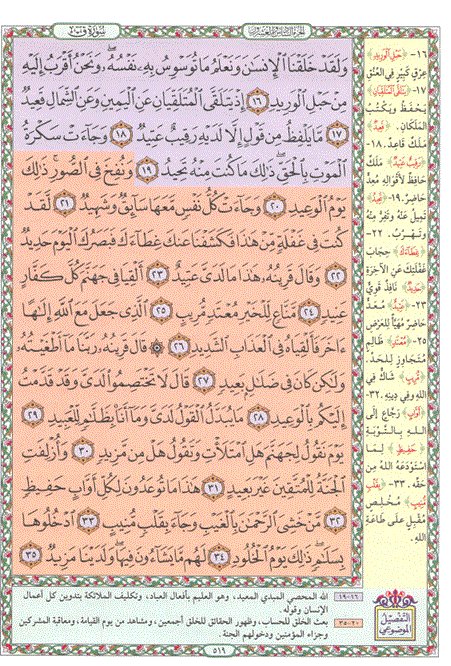 سورة ق ٥٠
الجزء السادس والعشرون
وَلَقَدْ خَلَقْنَا الْإِنسَٰنَ وَنَعْلَمُ مَا تُوَسْوِسُ بِهِۦ نَفْسُهُۥ ۖ وَنَحْنُ أَقْرَبُ إِلَيْهِ
مِنْ حَبْلِ الْوَرِيدِ ١٦ إِذْ يَتَلَقَّى الْمُتَلَقِّيَانِ عَنِ الْيَمِينِ وَعَنِ الشِّمَالِ قَعِيدٌ
١٧ مَّا يَلْفِظُ مِن قَوْلٍ إِلَّا لَدَيْهِ رَقِيبٌ عَتِيدٌ ١٨ وَجَاءَتْ سَكْرَةُ
الْمَوْتِ بِالْحَقِّ ۖ ذَٰلِكَ مَا كُنتَ مِنْهُ تَحِيدُ ١٩ وَنُفِخَ فِي الصُّورِ ۚ ذَٰلِكَ
يَوْمُ الْوَعِيدِ ٢٠ وَجَاءَتْ كُلُّ نَفْسٍ مَّعَهَا سَائِقٌ وَشَهِيدٌ ٢١ لَّقَدْ
كُنتَ فِي غَفْلَةٍ مِّنْ هَٰذَا فَكَشَفْنَا عَنكَ غِطَاءَكَ فَبَصَرُكَ الْيَوْمَ حَدِيدٌ
٢٢ وَقَالَ قَرِينُهُۥ هَٰذَا مَا لَدَيَّ عَتِيدٌ ٢٣ أَلْقِيَا فِي جَهَنَّمَ كُلَّ كَفَّارٍ
عَنِيدٍ ٢٤ مَّنَّاعٍ لِّلْخَيْرِ مُعْتَدٍ مُّرِيبٍ ٢٥ الَّذِي جَعَلَ مَعَ اللَّهِ إِلَٰهًا
ءَاخَرَ فَأَلْقِيَاهُ فِي الْعَذَابِ الشَّدِيدِ ٢٦ ۞ قَالَ قَرِينُهُۥ رَبَّنَا مَا أَطْغَيْتُهُۥ
وَلَٰكِن كَانَ فِي ضَلَٰلٍ بَعِيدٍ ٢٧ قَالَ لَا تَخْتَصِمُوا لَدَيَّ وَقَدْ قَدَّمْتُ
إِلَيْكُم بِالْوَعِيدِ ٢٨ مَا يُبَدَّلُ الْقَوْلُ لَدَيَّ وَمَا أَنَا بِظَلَّٰمٍ لِّلْعَبِيدِ ٢٩
يَوْمَ نَقُولُ لِجَهَنَّمَ هَلِ امْتَلَأْتِ وَتَقُولُ هَلْ مِن مَّزِيدٍ ٣٠ وَأُزْلِفَتِ
الْجَنَّةُ لِلْمُتَّقِينَ غَيْرَ بَعِيدٍ ٣١ هَٰذَا مَا تُوعَدُونَ لِكُلِّ أَوَّابٍ حَفِيظٍ
٣٢ مَّنْ خَشِيَ الرَّحْمَٰنَ بِالْغَيْبِ وَجَاءَ بِقَلْبٍ مُّنِيبٍ ٣٣ ادْخُلُوهَا
بِسَلَٰمٍ ۖ ذَٰلِكَ يَوْمُ الْخُلُودِ ٣٤ لَهُم مَّا يَشَاءُونَ فِيهَا وَلَدَيْنَا مَزِيدٌ ٣٥
١٦- ﴿حَبْلِ الْوَرِيدِ﴾
عِرْقٍ كَبِيرٍ فِي الْعُنُقِ
١٧- ﴿يَتَلَقَّى الْمُتَلَقِّيَانِ﴾
يَحْفَظُ وَيَكْتُبُ
المَلَكَانِ. ﴿قَعِيدٌ﴾
مَلَكٌ قَاعِدٌ. ١٨-
﴿رَقِيبٌ عَتِيدٌ﴾ مَلَكٌ
حَافِظٌ لأَقْوَالِهِ مُعَدٌّ
حَاضِرٌ. ١٩- ﴿تَحِيدُ﴾
تَمِيلُ عَنْهُ وَتَفِرُّ مِنْهُ
وَتَهْرُبُ. ٢٢-
﴿غِطَاءَكَ﴾ حِجَابَ
غَفْلَتِكَ عَنِ الآخِرَةِ
﴿حَدِيدٌ﴾ نَافِذٌ قَوِيٌّ
٢٣- ﴿عَتِيدٌ﴾ مُعَدٌّ
حَاضِرٌ مُهَيَّأٌ لِلْعَرْضِ
٢٥- ﴿مُعْتَدٍ﴾ ظَالِمٍ
مُتَجَاوِزٍ لِلْحَدِّ.
﴿مُرِيبٍ﴾ شَاكٍّ فِي
اللهِ وَفِي دِينِهِ. ٣٢-
﴿أَوَّابٍ﴾ رَجَّاعٍ إِلَى
اللهِ بِالتَّوْبَةِ
﴿حَفِيظٍ﴾ لِمَا
اسْتَوْدَعَهُ اللهُ مِنْ
حَقِّهِ. ٣٣- ﴿بِقَلْبٍ
مُنِيبٍ﴾ مُخْلِصٍ
مُقْبِلٍ عَلَى طَاعَةِ
اللهِ.
التفصيل الموضوعي
١٦-١٩ الله المحصي المبدي المعيد، وهو العليم بأفعال العباد، وتكليف الملائكة بتدوين كل أعمال
الإنسان وقوله.
٢٠-٣٥ بعث الخلق للحساب، وظهور الحقائق للخلق أجمعين، ومشاهد من يوم القيامة، ومعاقبة المشركين
وجزاء المؤمنين ودخولهم الجنة.
٥١٩